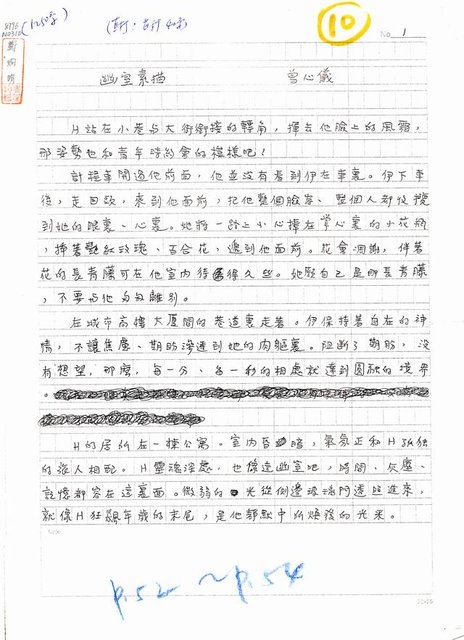 (1250字)
(直行·每行40字)
10
No. 1
幽室素描 曾心儀
H站在小巷与大街銜接的轉角,擇去他臉上的風霜,
那姿勢也和青年時約會的模樣吧!
計程車開過他前面,他並沒有看到伊在車裏。伊下車
後,走回頭,來到他面前,把他整個臉容、整個人都攸攬
到她的眼裏、心裏。她將一路上小心捧在掌心裏的小花瓶
,插著艷紅玫瑰、百合花,遞到他面前。花會凋謝,伴著
花的長青藤可在他室內待得久些。她願自己是那長青藤
,不要与他匆匆離別。
在城市高樓大厦間的巷道裏走著。伊保持著自在的神
情,不讓焦慮、期盼滲透到她的肉軀裏。阻断了期盼,沒
有想望,那麼,每一分、每一秒的相處就達到圓融的境界
。
H的居所在一棟公寓。室內昏暗,氣氛正和H孤独
的旅人相配。H靈魂深處,也像這幽室吧,時間、灰塵、
記憶都容在這裏面。微弱的光從側邊玻璃門透照進來,
就像H狂飆年歲的末尾,是他靜默中所煥發的光采。
P.52 ~ P.54